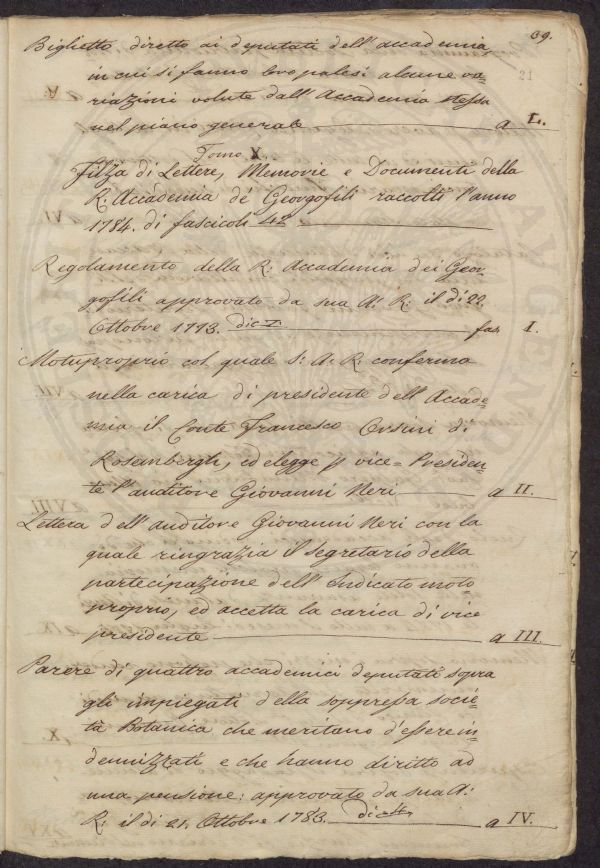 39.
21
Biglietto diretto ai deputati dell'accademia
in cui si fanno loro palesi alcune va
riazioni volute dall'Accademia stessa
nel piano generale a L.
Tomo X.
Filza di Lettere, Memorie e Documenti della
R: Accademia de Georgofili raccolti l'anno
1784. di fascicoli 42
Regolamento della R: Accademia dei Geor-
gofili approvato da sua A: R: il di 22.
Ottobre 1773. fas I.
Motuproprio col quale S: A: R: conferma
nella carica di presidente dell'Accade=
mia il Conte Francesco Orsini di
Rosembergh, ed elegge p vice=Presiden=
te l'auditore Giovanni Neri a II.
Lettera dell'auditore Giovanni Neri con la
quale ringrazia il segretario della
partecipazione dell'indicato moto
proprio, ed accetta la carica di vice
presidente a III.
Parere di quattro accademici deputati sopra
gli impiegati della soppressa socie=
tà Botanica che meritano d'essere in=
dennizzati e che hanno diritto ad
una pensione: approvato da sua A:
R: il di 21. Ottobre 1783. a IV.